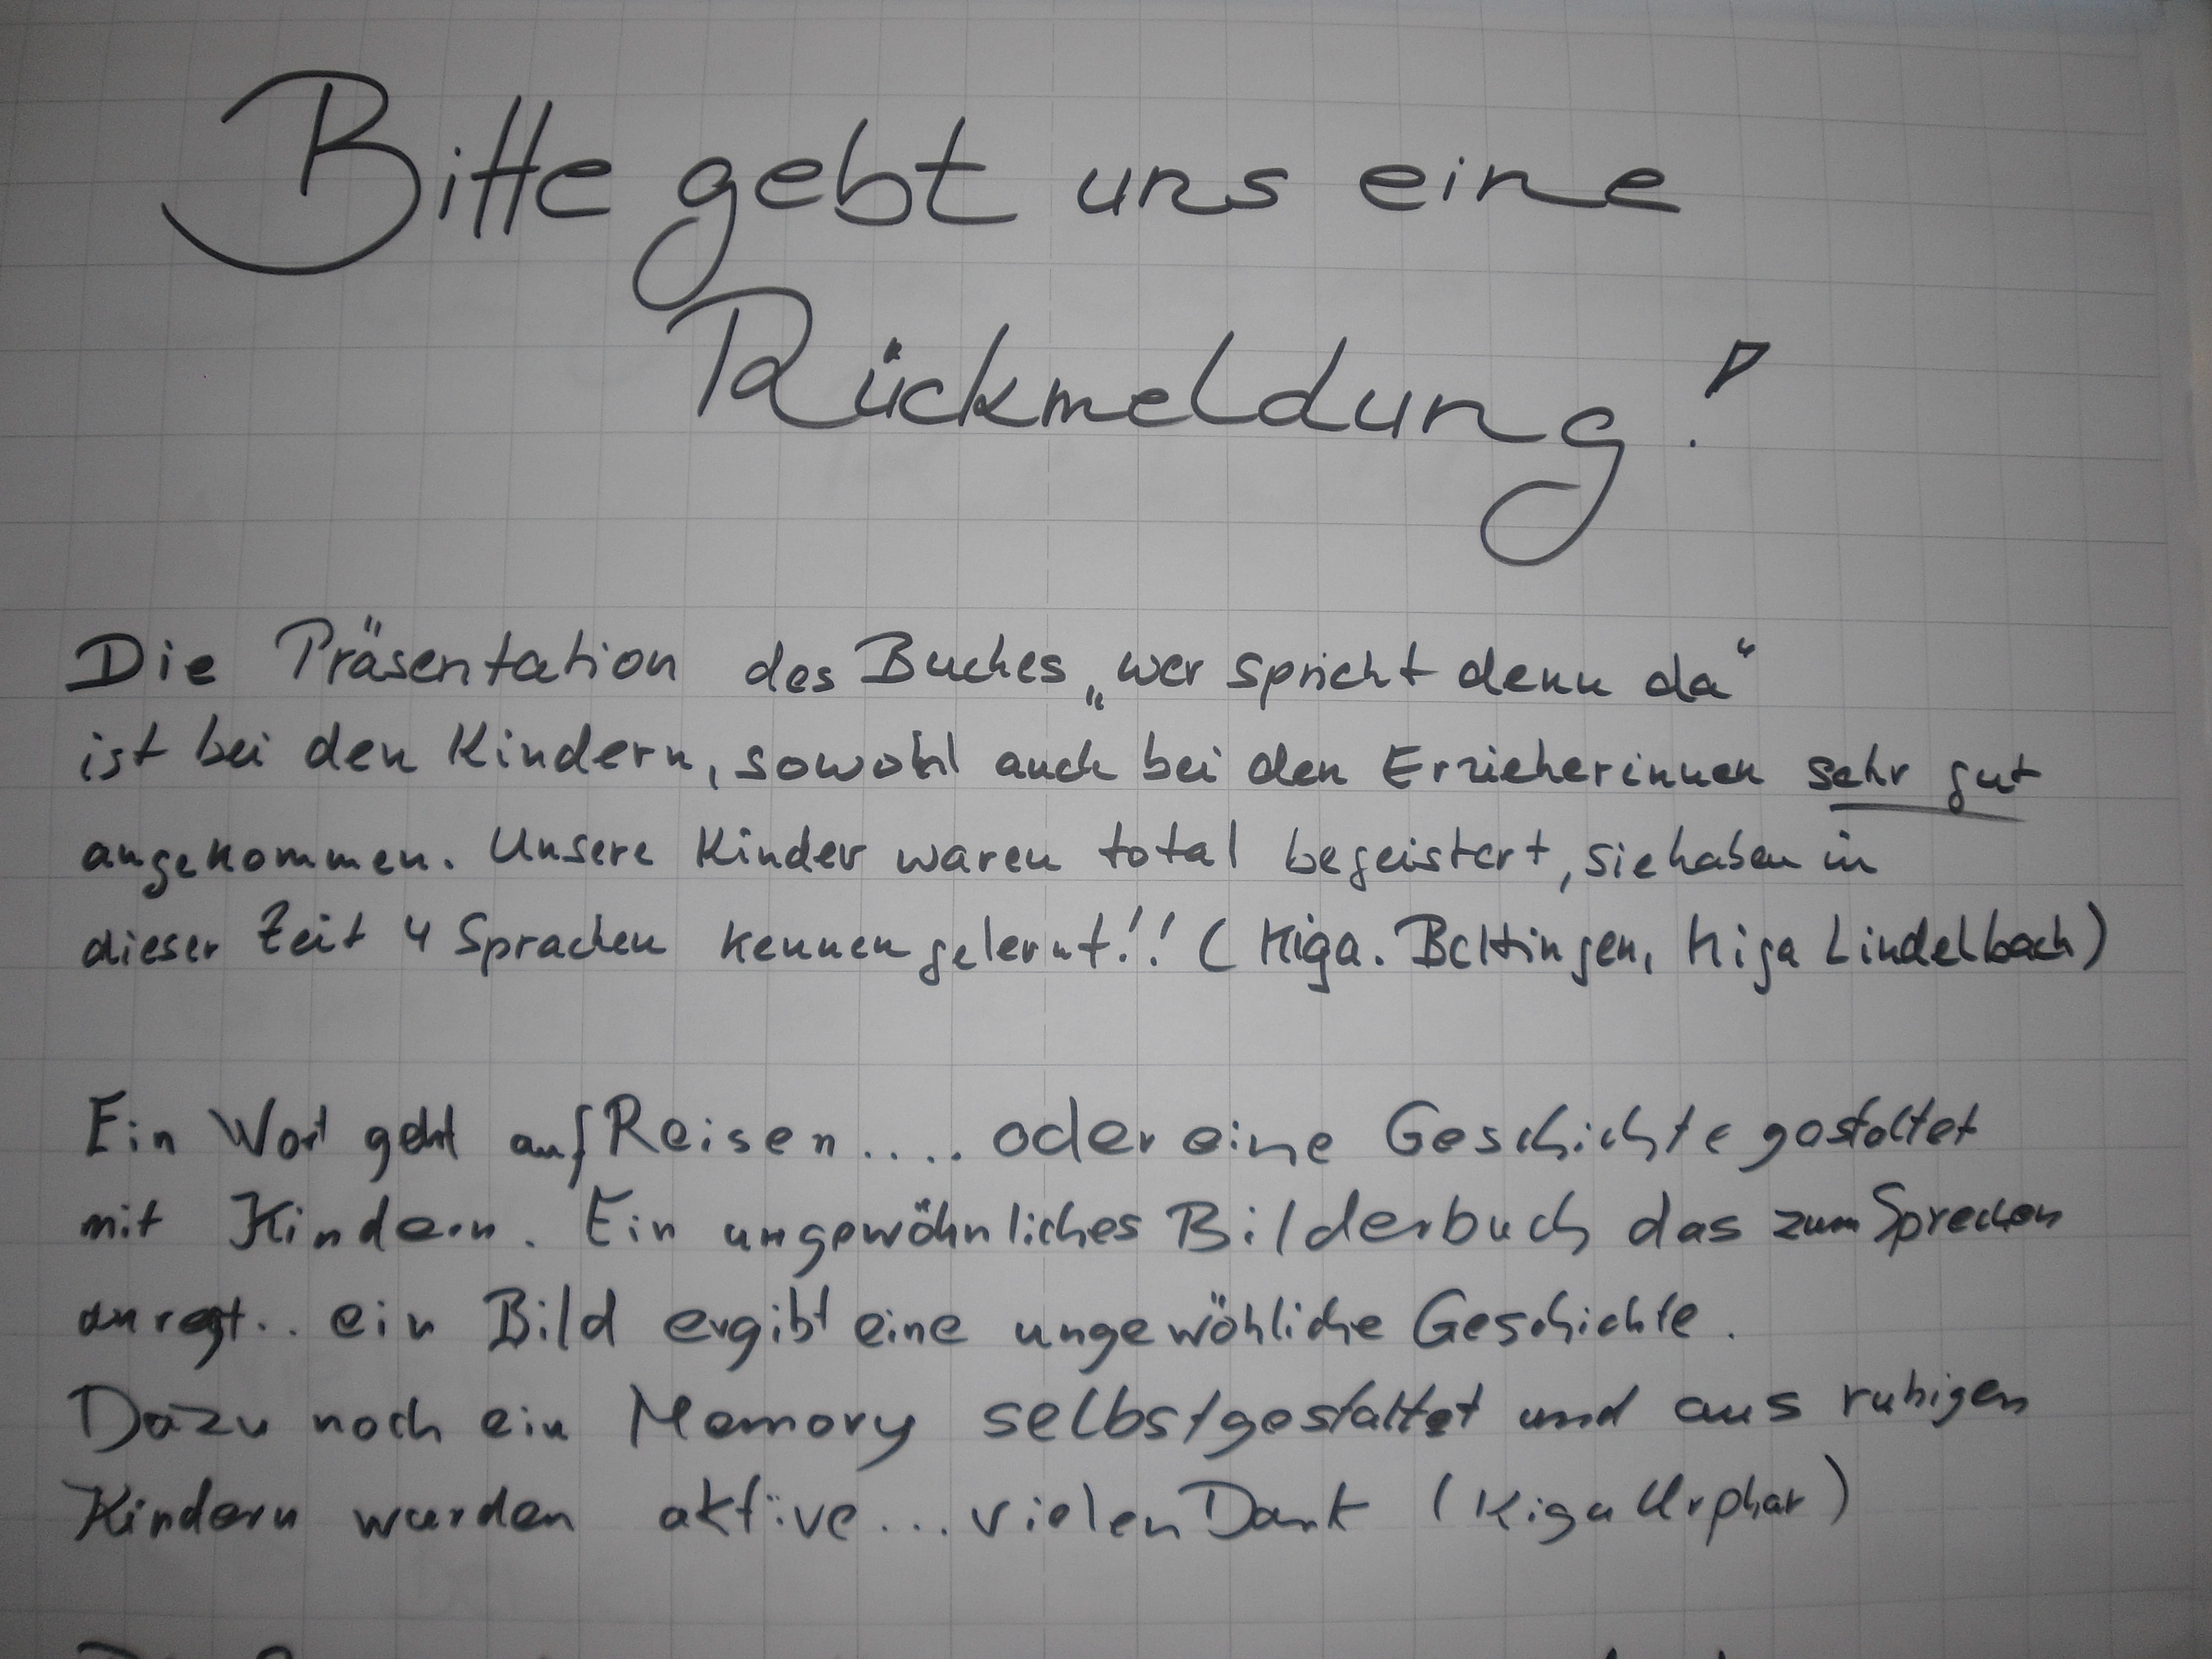 Bitte gebt uns eine
Rückmeldung!
Die Präsentation des Buches „wer spricht denn da“
ist bei den Kindern, sowohl auch bei den Erzieherinnen sehr gut
angekommen. Unsere Kinder waren total begeistert, sie haben in
dieser Zeit 4 Sprachen kennen gelernt!! (Kiga. Bettingen, Kiga Lindelbach)
Ein Wort geht auf Reisen.... oder eine Geschichte gestaltet
mit Kindern. Ein ungewöhnliches Bilderbuch das zum Sprechen
anregt.. ein Bild ergibt eine ungewöhliche Geschichte.
Dazu noch ein Memory selbstgestaltet und aus ruhigen
Kindern wurden aktive... vielen Dank (Kiga Urphar)